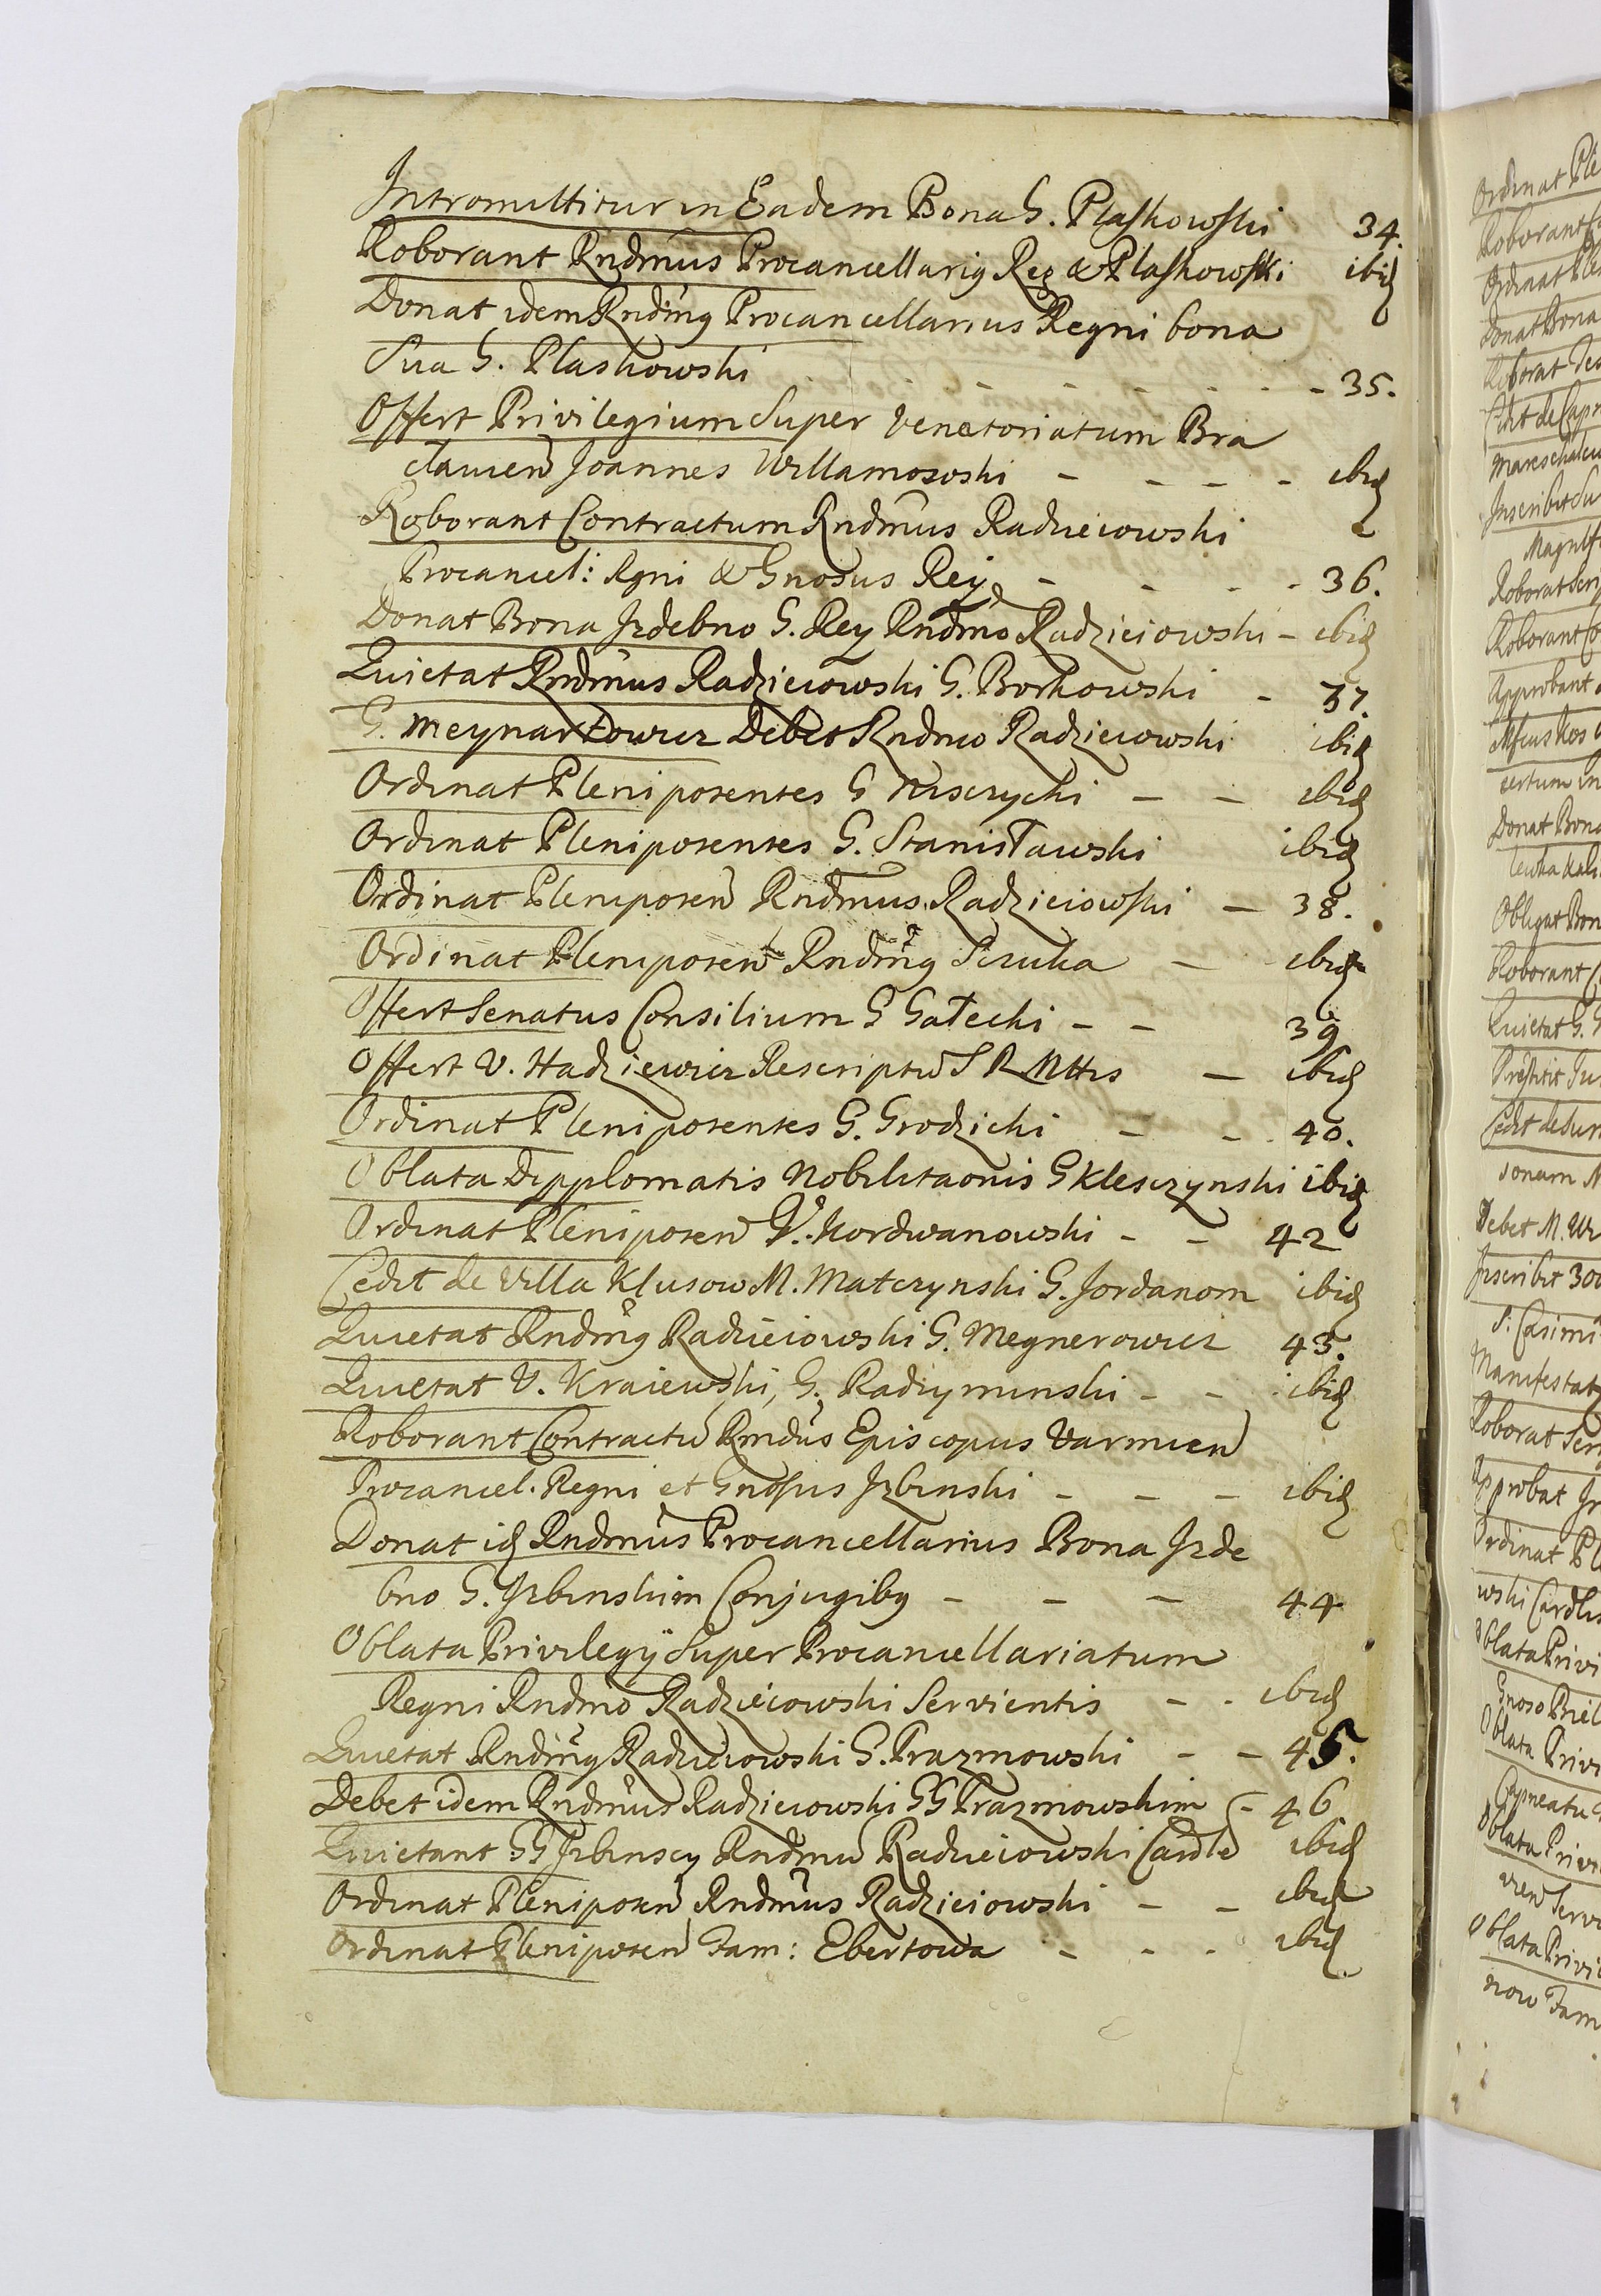 Intromittitur in Eadem Bona G. Plaskowski 34.
Roborant Rndmus Procancellarig Reg & Plaskowski ibid
Donat idem Rndmg Procancellarius Regni bona
Sua G. Plaskowski - - - - - 35.
Offert Privilegium Super Venatoriatum Bra
clavien Joannes Willamowski - - - - ibid
Roborant Contractum Rndmus Radzieiowski
Procancel: Rgni & Gnosus Rey - - - 36.
Donat Bona Jzdebno G. Rey Rndmo Radzieiowski - ibid
Quietat Rndmus Radzieiowski G. Borkowski - 37.
G. Meynartowicz Debet Rndmo Radzieiowski ibid
Ordinat Plenipotentes G - - ibid
Ordinat Plenipotentes G. Stanisławski ibid
Ordinat Plenipoten Rndmus Radzieiowski - 38.
Ordinat Plenipoten Rndmg Szuka - ibid
Offert Senatus Consilium G Gałecki - - 39
Offert V. Hadziewicz Rescriptu S R Mttis - ibid
Ordinat Plenipotentes G. Grodzicki - - 40.
Oblata Dypplomatis Nobilitaonis G Klesczynski ibid
Ordinat Plenipoten V. Kordwanowski - - 42
Cedit de Villa Klusow M. Matczynski G. Jordanom ibid
Quietat Rndmg Radzieiowski G. Megnerowicz 43.
Quietat V. Kraiewski, G. Radzyminski - - ibid
Roborant Contractu Rmdus Episcopus Varmien
Procancel. Regni et Gnosus Jzbinski - - - ibid
Donat id Rndmus Procancellarius Bona Jzde
bno G. Jzbinskim Conjugibg - - - 44
Oblata Privilegij Super Procancellariatum
Regni Rndmo Radzieiowski Servientis - - ibid
Quietat Rndmg Radzieiowski G. Prazmowski - - 45.
Debet idem Rndmus Radzieiowski GG Prazmowskim - 46
Quietant GG Jzbinscy Rndmu Radzieiowski Cardle ibid
Ordinat Plenipoten Rndmus Radzieiowski - - ibid
Ordinat Plenipoten Fam: Ebertowa - - - ibid.
Ordinat Ple
Roborant
Ordinat Ple
Donat Bona
Roborat
Inscribit
Roborat
Roborant Co
Approbant
Donat Bona
Obligat Bon
Roborant C
Quietat G. G
Debet M.
Inscribit 300
S. Casimi
Manifestat
Approbat
Ordinat Pl
Oblata Privi
Oblata Priv
Oblata Priv
Oblata Privi